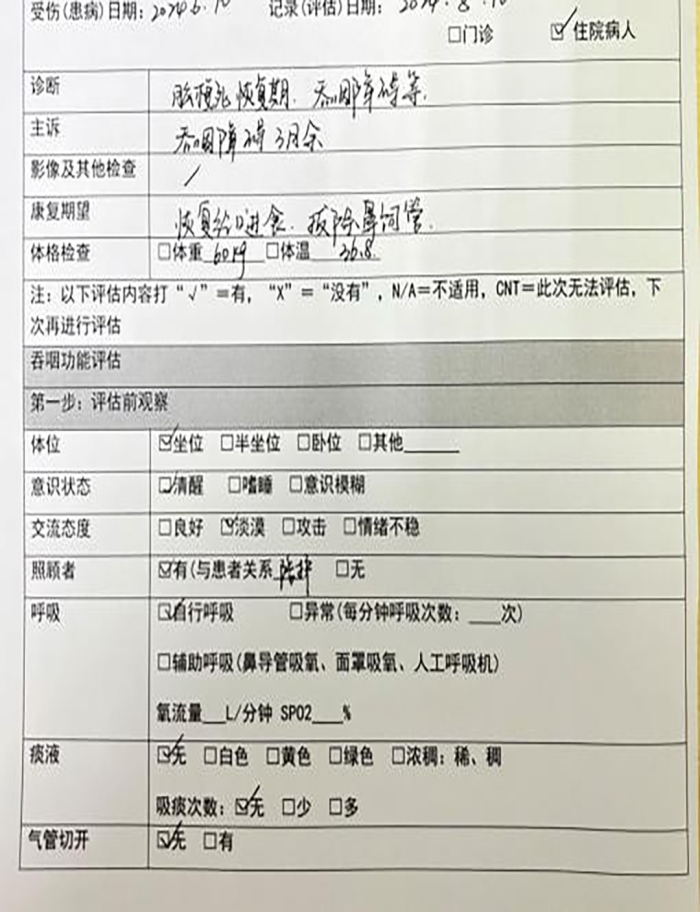 受伤(患病)日期：2024.6.10 记录(评估)日期：2024.8.10
□门诊 ☑住院病人
诊断 脑梗死恢复期．吞咽障碍等．
主诉 吞咽障碍3月余
影像及其他检查 /
康复期望 恢复经口进食．拔除鼻饲管．
体格检查 □体重 60kg □体温 36.8
注：以下评估内容打“√”＝有，“X”＝“没有”，N/A＝不适用，CNT＝此次无法评估，下
次再进行评估
吞咽功能评估
第一步：评估前观察
体位 ☑坐位 □半坐位 □卧位 □其他______
意识状态 ☑清醒 □嗜睡 □意识模糊
交流态度 □良好 ☑淡漠 □攻击 □情绪不稳
照顾者 ☑有(与患者关系 陪护 □无
呼吸 ☑自行呼吸 □异常(每分钟呼吸次数：___次)
□辅助呼吸(鼻导管吸氧、面罩吸氧、人工呼吸机)
氧流量___L/分钟 SPO2____%
痰液 ☑无 □白色 □黄色 □绿色 □浓稠：稀、稠
吸痰次数：☑无 □少 □多
气管切开 ☑无 □有